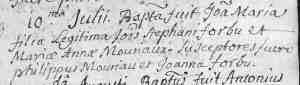 10 ma Julii. Bapta fuit Joâ Maria
filia Legitima Joïs Stephani forbu et
Mariæ Annæ Mouriaux. Susceptores fuere
philippus Mouriau et Joanna forbu.
Augusti Baptus fuit Antonius